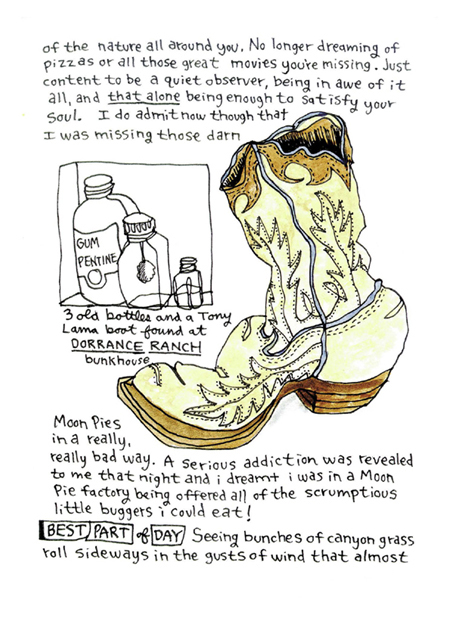 of the nature all around you. No longer dreaming of
pizzas or all those great movies you're missing. Just
content to be a quiet observer, being in awe of it
all, and that alone being enough to satisfy your
soul. I do admit now though that
I was missing those darn
GUM
PENTINE
3 old bottles and a Tony
Lama boot found at
DORRANCE RANCH
bunkhouse
Moon Pies
in a really,
really bad way. A serious addiction was revealed
to me that night and i dreamt i was in a Moon
Pie factory being offered all of the scrumptious
little buggers i could eat!
BEST PART of DAY Seeing bunches of canyon grass
roll sideways in the gusts of wind that almost